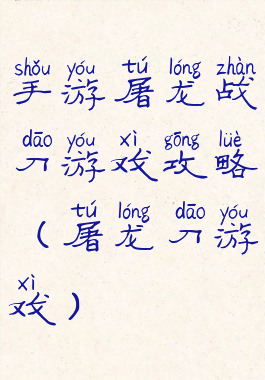 shǒu yóu tú lóng zhàn
手游屠龙战
dāo yóu xì gōng lüè
刀游戏攻略
tú lóng dāo yóu
（屠龙刀游
xì
戏）